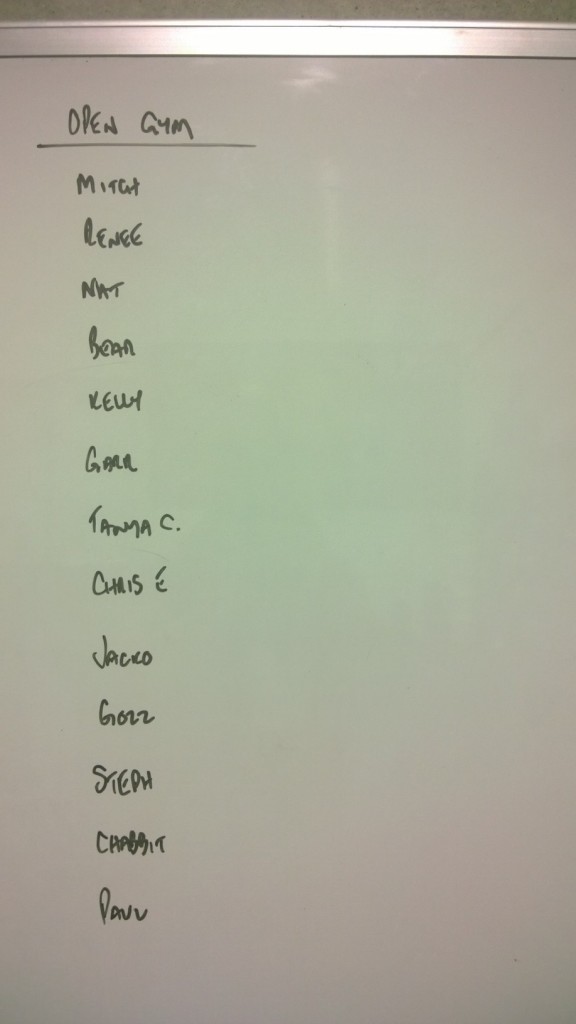 OPEN GYM
MITCH
RENEE
NAT
BEAR
KELLY
GARR
TANYA C.
CHRIS E
JACKO
GOZZ
STEPH
CHABBIT